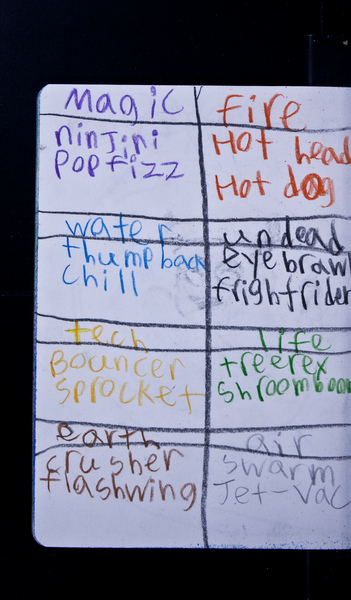 Magic
ninjini
popfizz
fire
Hot head
Hot dog
water
thumpback
chill
undead
eyebrawl
frightrider
tech
Bouncer
sprocket
life
treerex
shroomboom
earth
crusher
flashwing
air
swarm
Jet-Vac